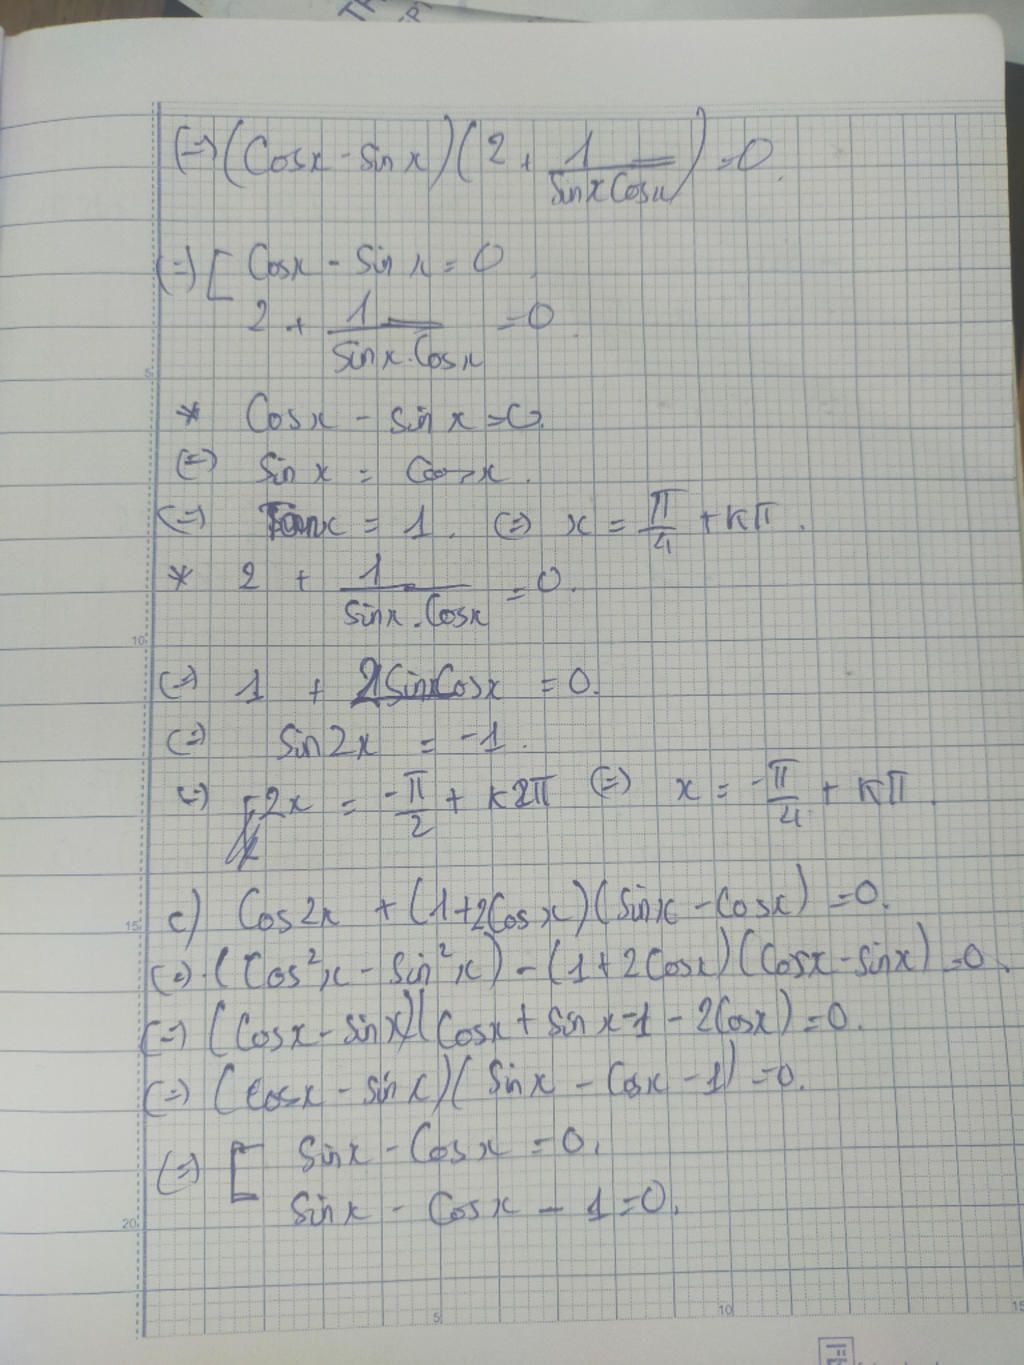 (=) (Cosx - Sin x) (2 + 1/(Sinx Cosx)) = 0.
(=) [ Cosx - Sin x = 0.
2 + 1/(Sinx.Cosx) = 0
5
* Cosx - sin x = 0.
(=) Sin x = Cos x.
(=) Tanx = 1. (=) x = π/4 + kπ.
* 2 + 1/(Sinx.Cosx) = 0.
10
(=) 1 + 2SinxCosx = 0.
(=) Sin2x = -1.
(=) 2x = -π/2 + k2π (=) x = -π/4 + kπ.
c) Cos2x + (1+2Cosx)(Sinx - Cosx) = 0.
15
(=) (Cos²x - Sin²x) - (1+2Cosx)(Cosx - sinx) = 0.
(=) (Cosx - sinx)(Cosx + sin x - 1 - 2Cosx) = 0.
(=) (Cosx - sinx)(Sinx - Cosx - 1) = 0.
(=) [ Sinx - Cosx = 0.
Sinx - Cosx - 1 = 0.
20
5 10 15